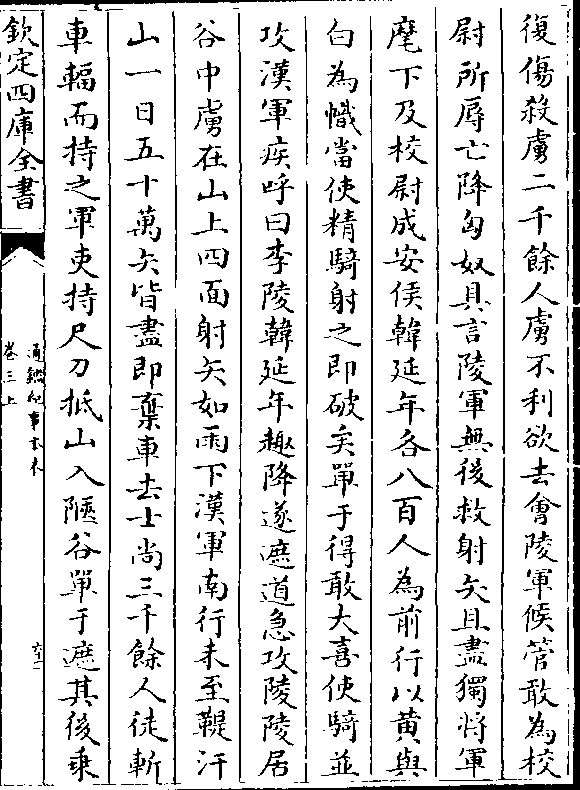 復傷殺虜二千餘人虜不利欲去會陵軍候管敢為校
尉所辱亡降匈奴具言陵軍無後救射矢且盡獨將軍
麾下及校尉成安侯韓延年各八百人為前行以黄與
白為幟當使精騎射之即破矣單于得敢大喜使騎並
攻漢軍疾呼曰李陵韓延年趣降遂遮道急攻陵陵居
谷中虜在山上四面射矢如雨下漢軍南行未至鞮汗
山一日五十萬矢皆盡即棄車去士尚三千餘人徒斬
車輻而持之軍吏持尺刀抵山入陿谷單于遮其後乗
欽定四庫全書
通鑑紀事本末
卷三上